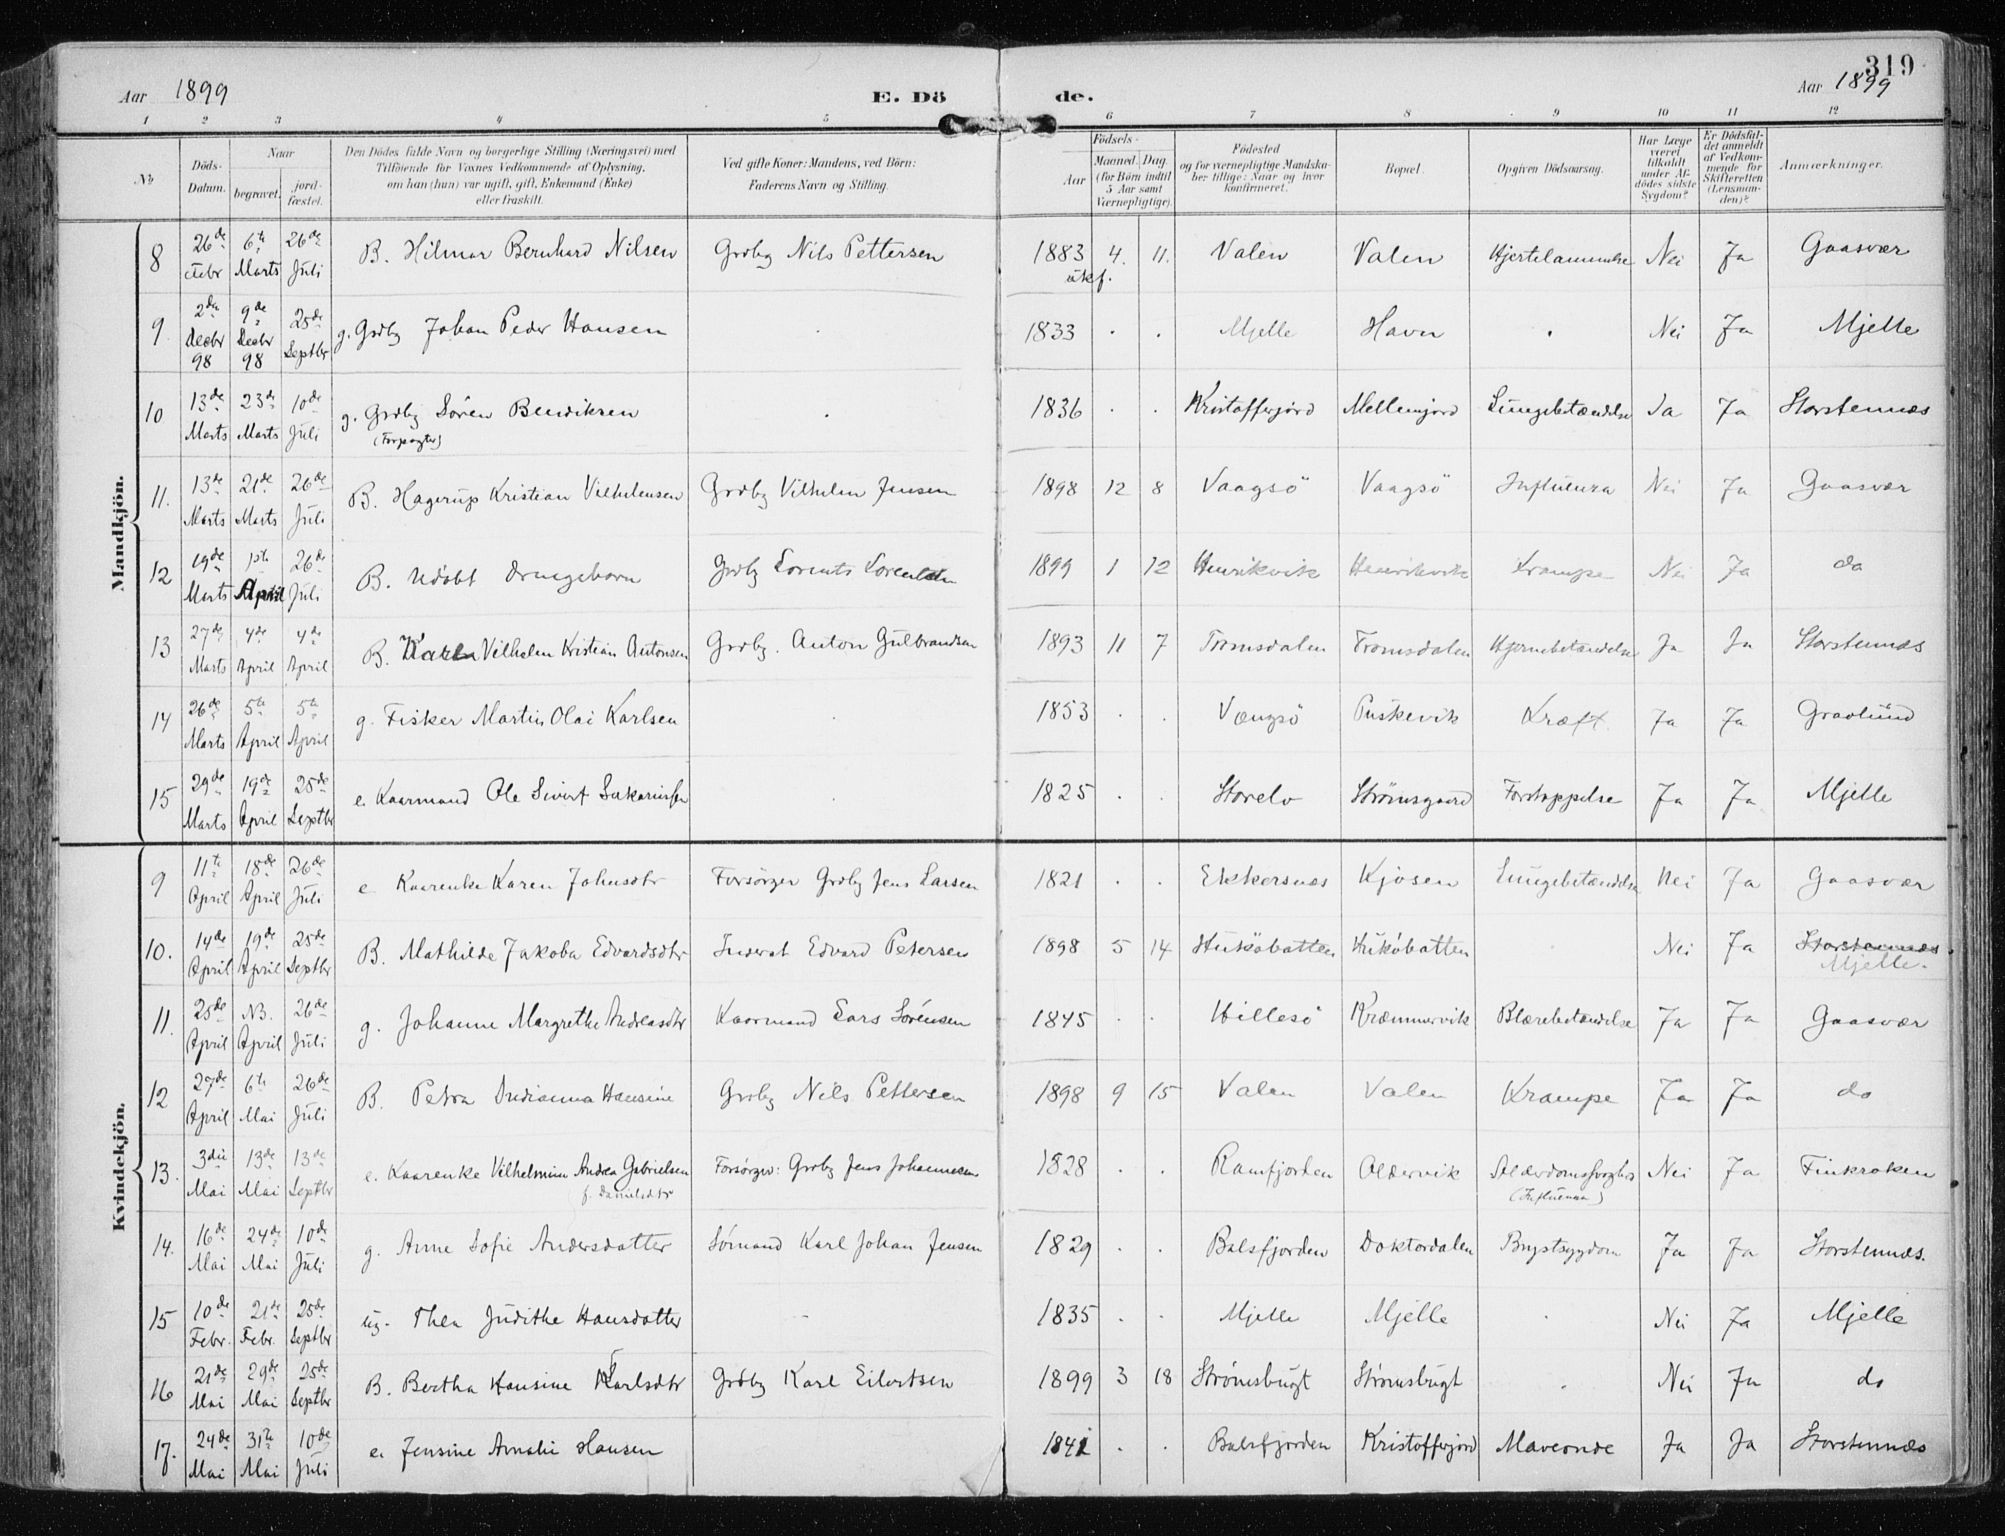 319
Aar 1899 E. Dö de. Aar 1899
1 2 3 4 5 6 7 8 9 10 11 12
No Döds-Datum. Naar begravet. jordfæstet. Den Dödes fulde Navn og borgerlige Stilling (Næringsvei) med Tilföiende for Voxnes Vedkommende af Oplysning, om han (hun) var ugift, gift, Enkemand (Enke) eller fraskilt. Ved gifte Koner: Mandens, ved Börn: Faderens Navn og Stilling. Födsels- Aar Maaned. Dag. (for Börn indtil 5 Aar samt Værnepligtige). Födested og for værnepligtige Mandskaber tillige: Naar og hvor konfirmeret. Bopæl. Opgiven Dödsaarsag. Har Læge været tilkaldt under Afdödes sidste Sygdom? Er Dödsfaldet anmeldt af Vedkommende for Skifteretten (Lensmanden)? Anmærkninger.
Mandkjön.
8 26de Febr 6te Marts 26de Juli B. Hilmar Bernhard Nilsen Grdbg Nils Pettersen 1883 ukf. 4. 11. Valen Valen Hjertelammelse Nei Ja Gaasvær
9 2den Decbr 98 9de Decbr 98 25de Septbr g. Grdbg Johan Peder Hansen . 1833 . . Mjelle Havn . Nei Ja Mjelle
10 13de Marts 23de Marts 10de Juli g. Grdbg Sören Bendiksen (Forpagter) . 1836 . . Kristofferjord Mellemjord Lungebetændelse Ja Ja Storstennæs
11. 13de Marts 21de Marts 26de Juli B. Hagerup Kristian Vilhelmsen Grdbg Vilhelm Jensen 1898 12 8 Vaagsö Vaagsö Influenza Nei Ja Gaasvær
12 19de Marts 1ste April 26de Juli B. Udöbt Drengebarn Grdbg Lorents Lorentsen 1899 1 12 Henrikvik Henrikvik Krampe Nei Ja do
13 27de Marts 4de April 4de April B. Karl Vilhelm Kristian Antonsen Grdbg. Anton Gulbrandsen 1893 11 7 Tromsdalen Tromsdalen Hjernebetændelse Ja Ja Storstennæs
14 26de Marts 5te April 5te April g. Fisker Martin Olai Karlsen . 1853 . . Vængsö Puskevik Kræft. Ja Ja Gravlund
15 29de Marts 19de April 25de Septbr e. Kaarmand Ole Sivert Sakariassen . 1825 . . Storelv Strömsgaard Forstoppelse Ja Ja Mjelle
Kvindekjön.
9 11te April 18de April 26de Juli e. Kaarenke Karen Johnsdtr Forsörger Grdbg Jens Larsen 1821 . . Ekkersnæs Kjosen Lungebetændelse Nei Ja Gaasvær
10. 14de April 19de April 25de Septbr B. Mathilde Jakoba Edvardsdtr Inderst Edvard Petersen 1898 5 14 Huköbatten Huköbatten . Nei Ja Storstennæs. Mjelle.
11. 25de April NB. April 26de Juli g. Johanne Margrethe Andreasdtr Kaarmand Lars Sörensen 1845 . . Hillesö Kræmmervik Blærebetændelse Ja Ja Gaasvær
12 27de April 6te Mai 26de Juli B. Petra Indianna Hansine Grdbg Nils Pettersen 1898 9 15 Valen Valen Krampe Ja Ja do
13. 3die Mai 13de Mai 13de Septbr e. Kaarenke Vilhelmine Andrea Gabrielsen f. Danielsdtr Forsörger: Grdbg Jens Johannesen 1828 . . Ramfjorden Oldervik Alderdomssvaghed (Influenza) Nei Ja Finkroken
14. 16de Mai 24de Mai 10de Juli g. Anne Sofie Andersdatter Sömand Karl Johan Jensen 1829 . . Balsfjorden Doktordalen Brystsygdom Ja Ja Storstennæs.
15 10de Febr. 21de Febr. 25de Septbr ug. Thea Judithe Hansdatter - 1835 . . Mjelle Mjelle . Nei Ja Mjelle
16 21de Mai 29de Mai 25de Septbr B. Bertha Hansine Karlsdtr Grdbg Karl Eilertsen 1899 3 18 Strömsbugt Strömsbugt . Nei Ja do
17. 24de Mai 31te Mai 10de Juli e. Jensine Amalie Hansen 1841 . . Balsfjorden Kristofferjord Maveonde Ja Ja Storstennæs